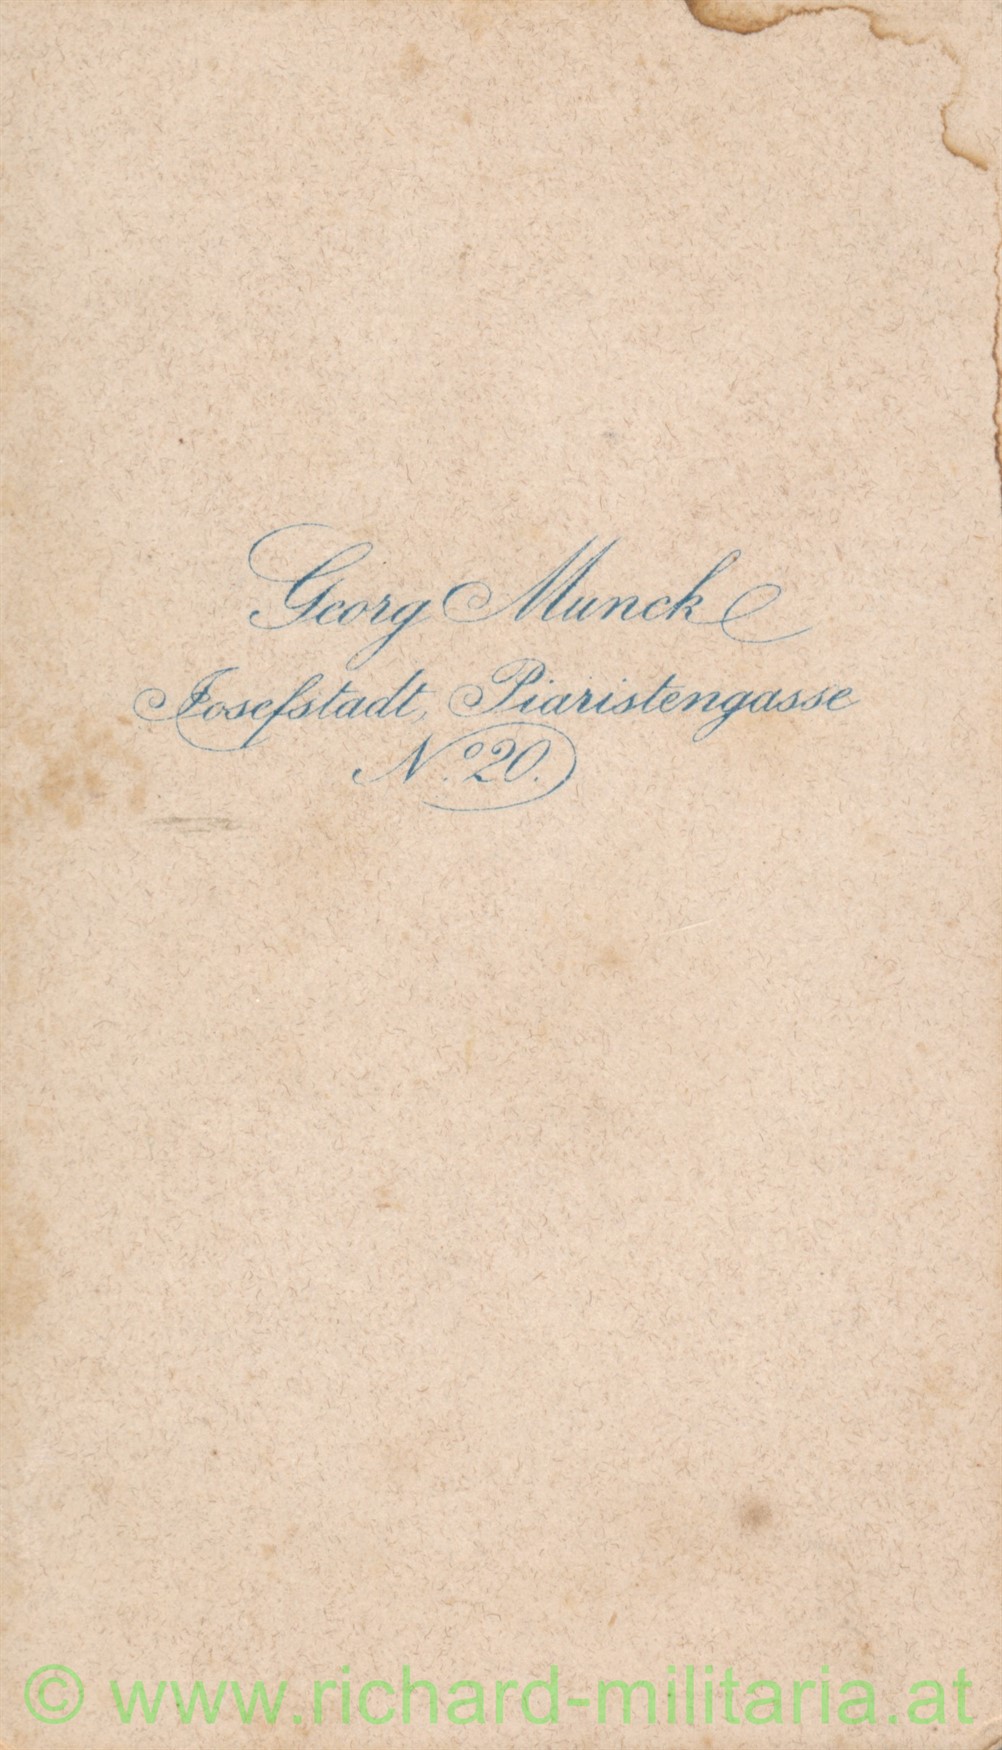 Georg Munck
Josefstadt, Piaristengasse
No. 20.
© www.richard-militaria.at